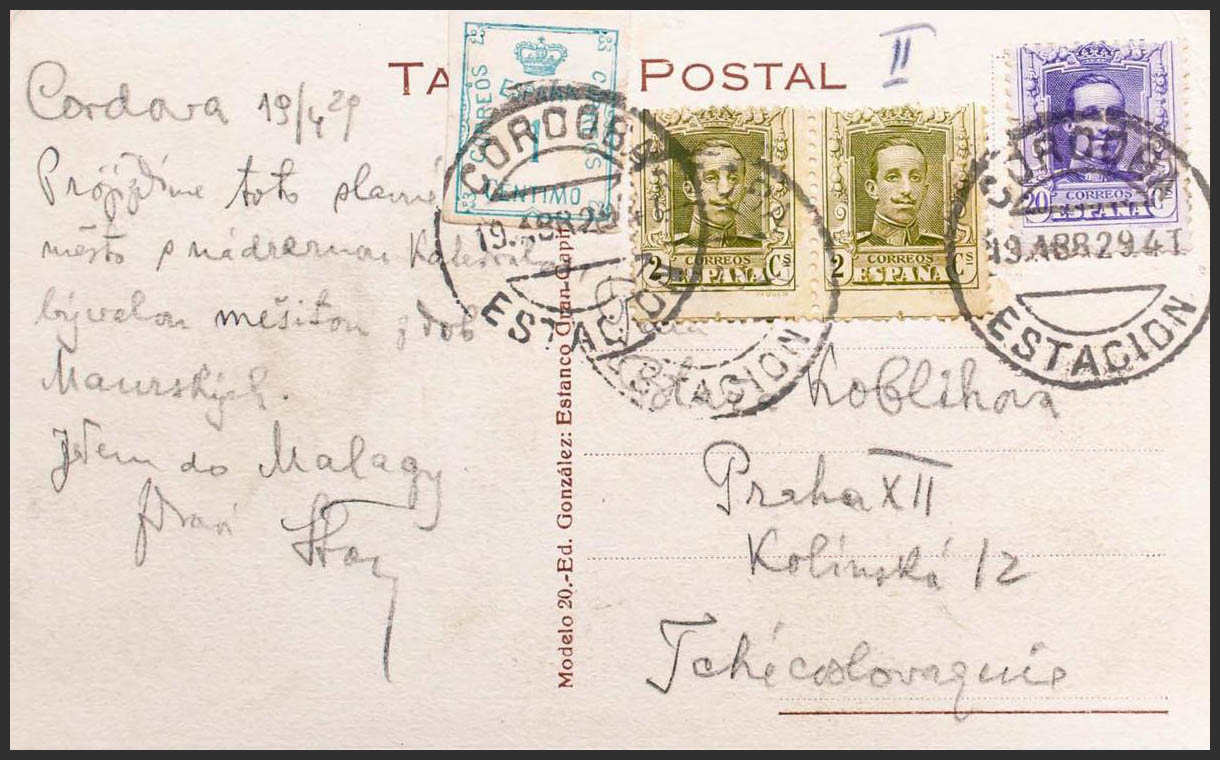 Cordova 19/4 29
Projíždíme toto slavné
město s nádhernou Katedrálou
bývalou mešitou z dob
Maurských.
Jdem do Malagy
Zdraví
TA POSTAL
II
CORREOS
ESPAÑA
CORREOS
1
CENTIMO
2 CORREOS Cs
ESPAÑA
2 CORREOS Cs
ESPAÑA
20 CORREOS Cs
ESPAÑA
CORDOBA
19.ABR.29
ESTACION
ESTACION
CORDOBA
19.ABR.29.4T
ESTACION
Modelo 20.-Ed. González: Estanco Gran Capit
Koblihova
Praha XII
Kolínská 12
Tchécoslovaquie